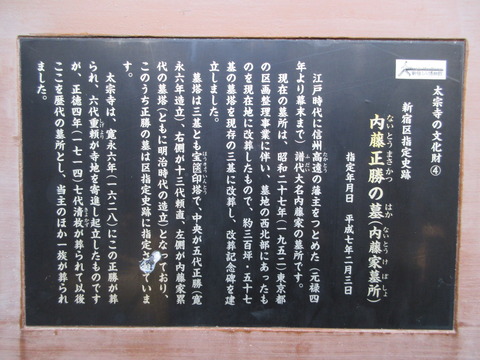 太宗寺の文化財 ④
新宿区指定史跡
ないとうまさかつ はか ないとうけ ぼしょ
内藤正勝の墓(内藤家墓所)
指定年月日 平成七年二月三日
江戸時代に信州高遠の藩主をつとめた(元禄四
たかとお
年より幕末まで)譜代大名内藤家の墓所です。
ふだい
現在の墓所は、昭和二十七年(一九五二)東京都
の区画整理事業に伴い、墓地の西北部にあったも
のを現在地に改葬したもので、約三百坪・五十七
基の墓塔を現存の三基に改葬し、改葬記念碑を建
立しました。
墓塔は三基とも宝篋印塔で、中央が五代正勝(寛
ほうきょういんとう
永六年造立)、右側が十三代頼直、左側が内藤家累
代の墓塔(ともに明治時代の造立)となっており、
このうち正勝の墓は区指定史跡に指定されていま
す。
太宗寺は、寛永六年(一六二八)にこの正勝が葬
られ、六代重頼が寺地を寄進し起立したものです
が、正徳四年(一七一四)七代清枚が葬られて以後
ここを歴代の墓所とし、当主のほか一族が葬られ
ました。